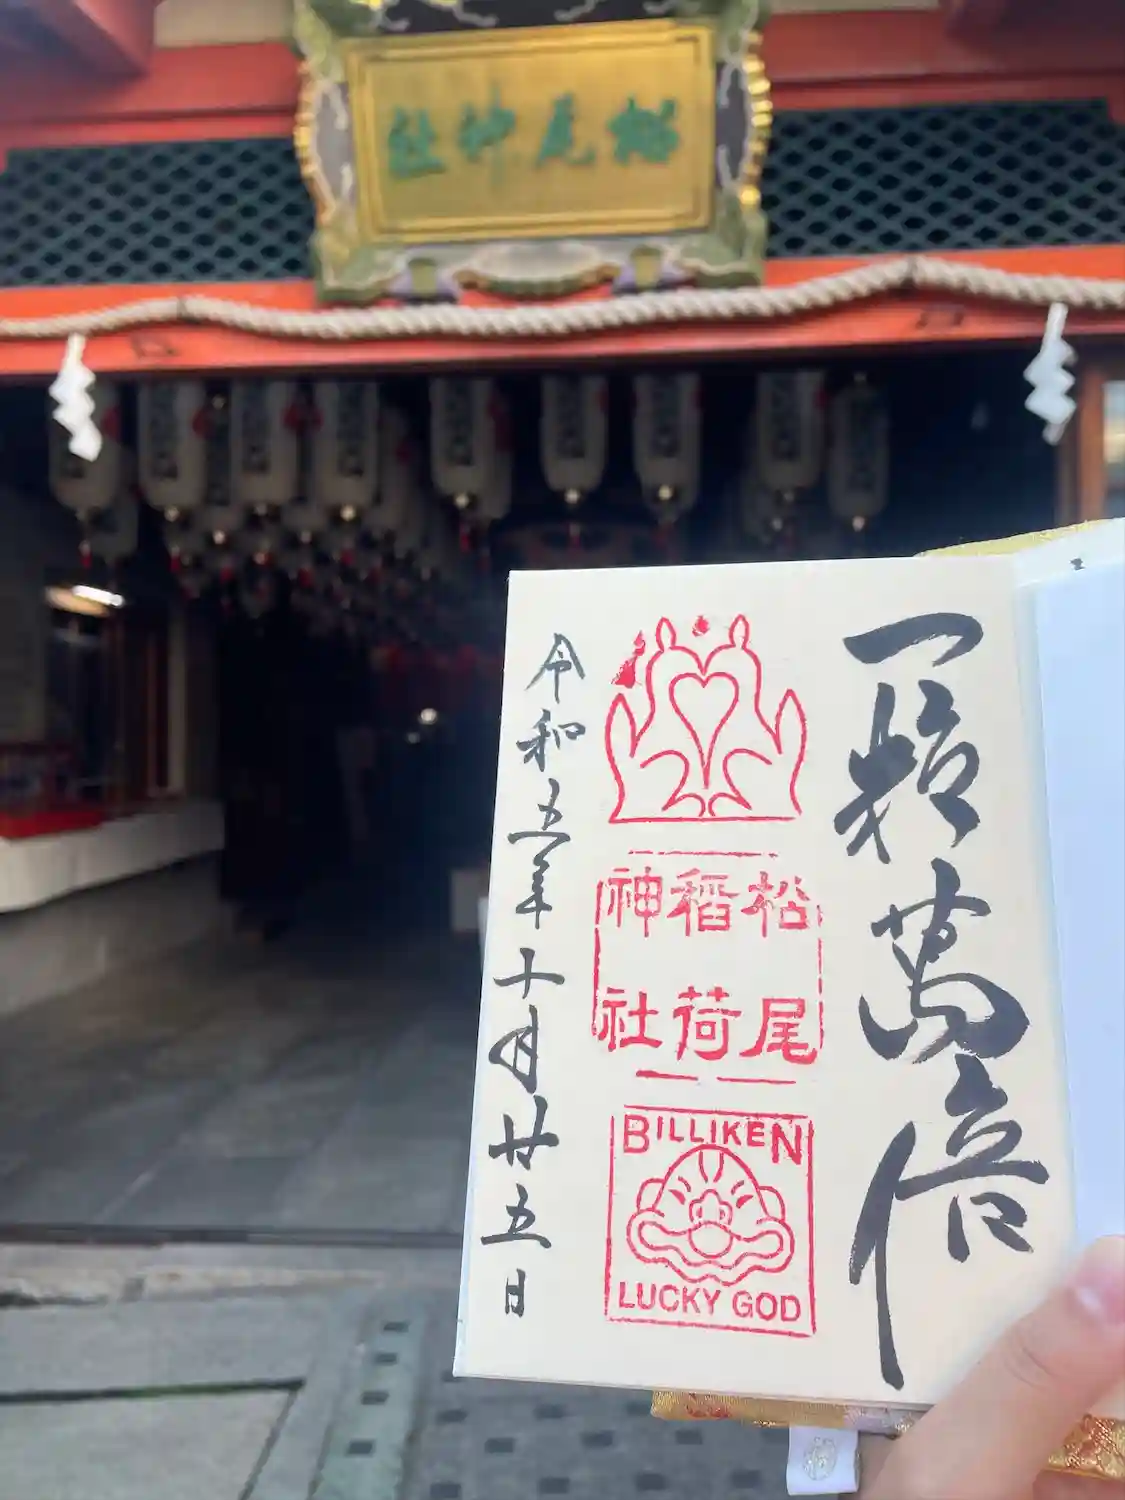 松尾神社
一粒萬倍
松尾
稲荷
神社
BILLIKEN
LUCKY GOD
令和五年十月廿五日